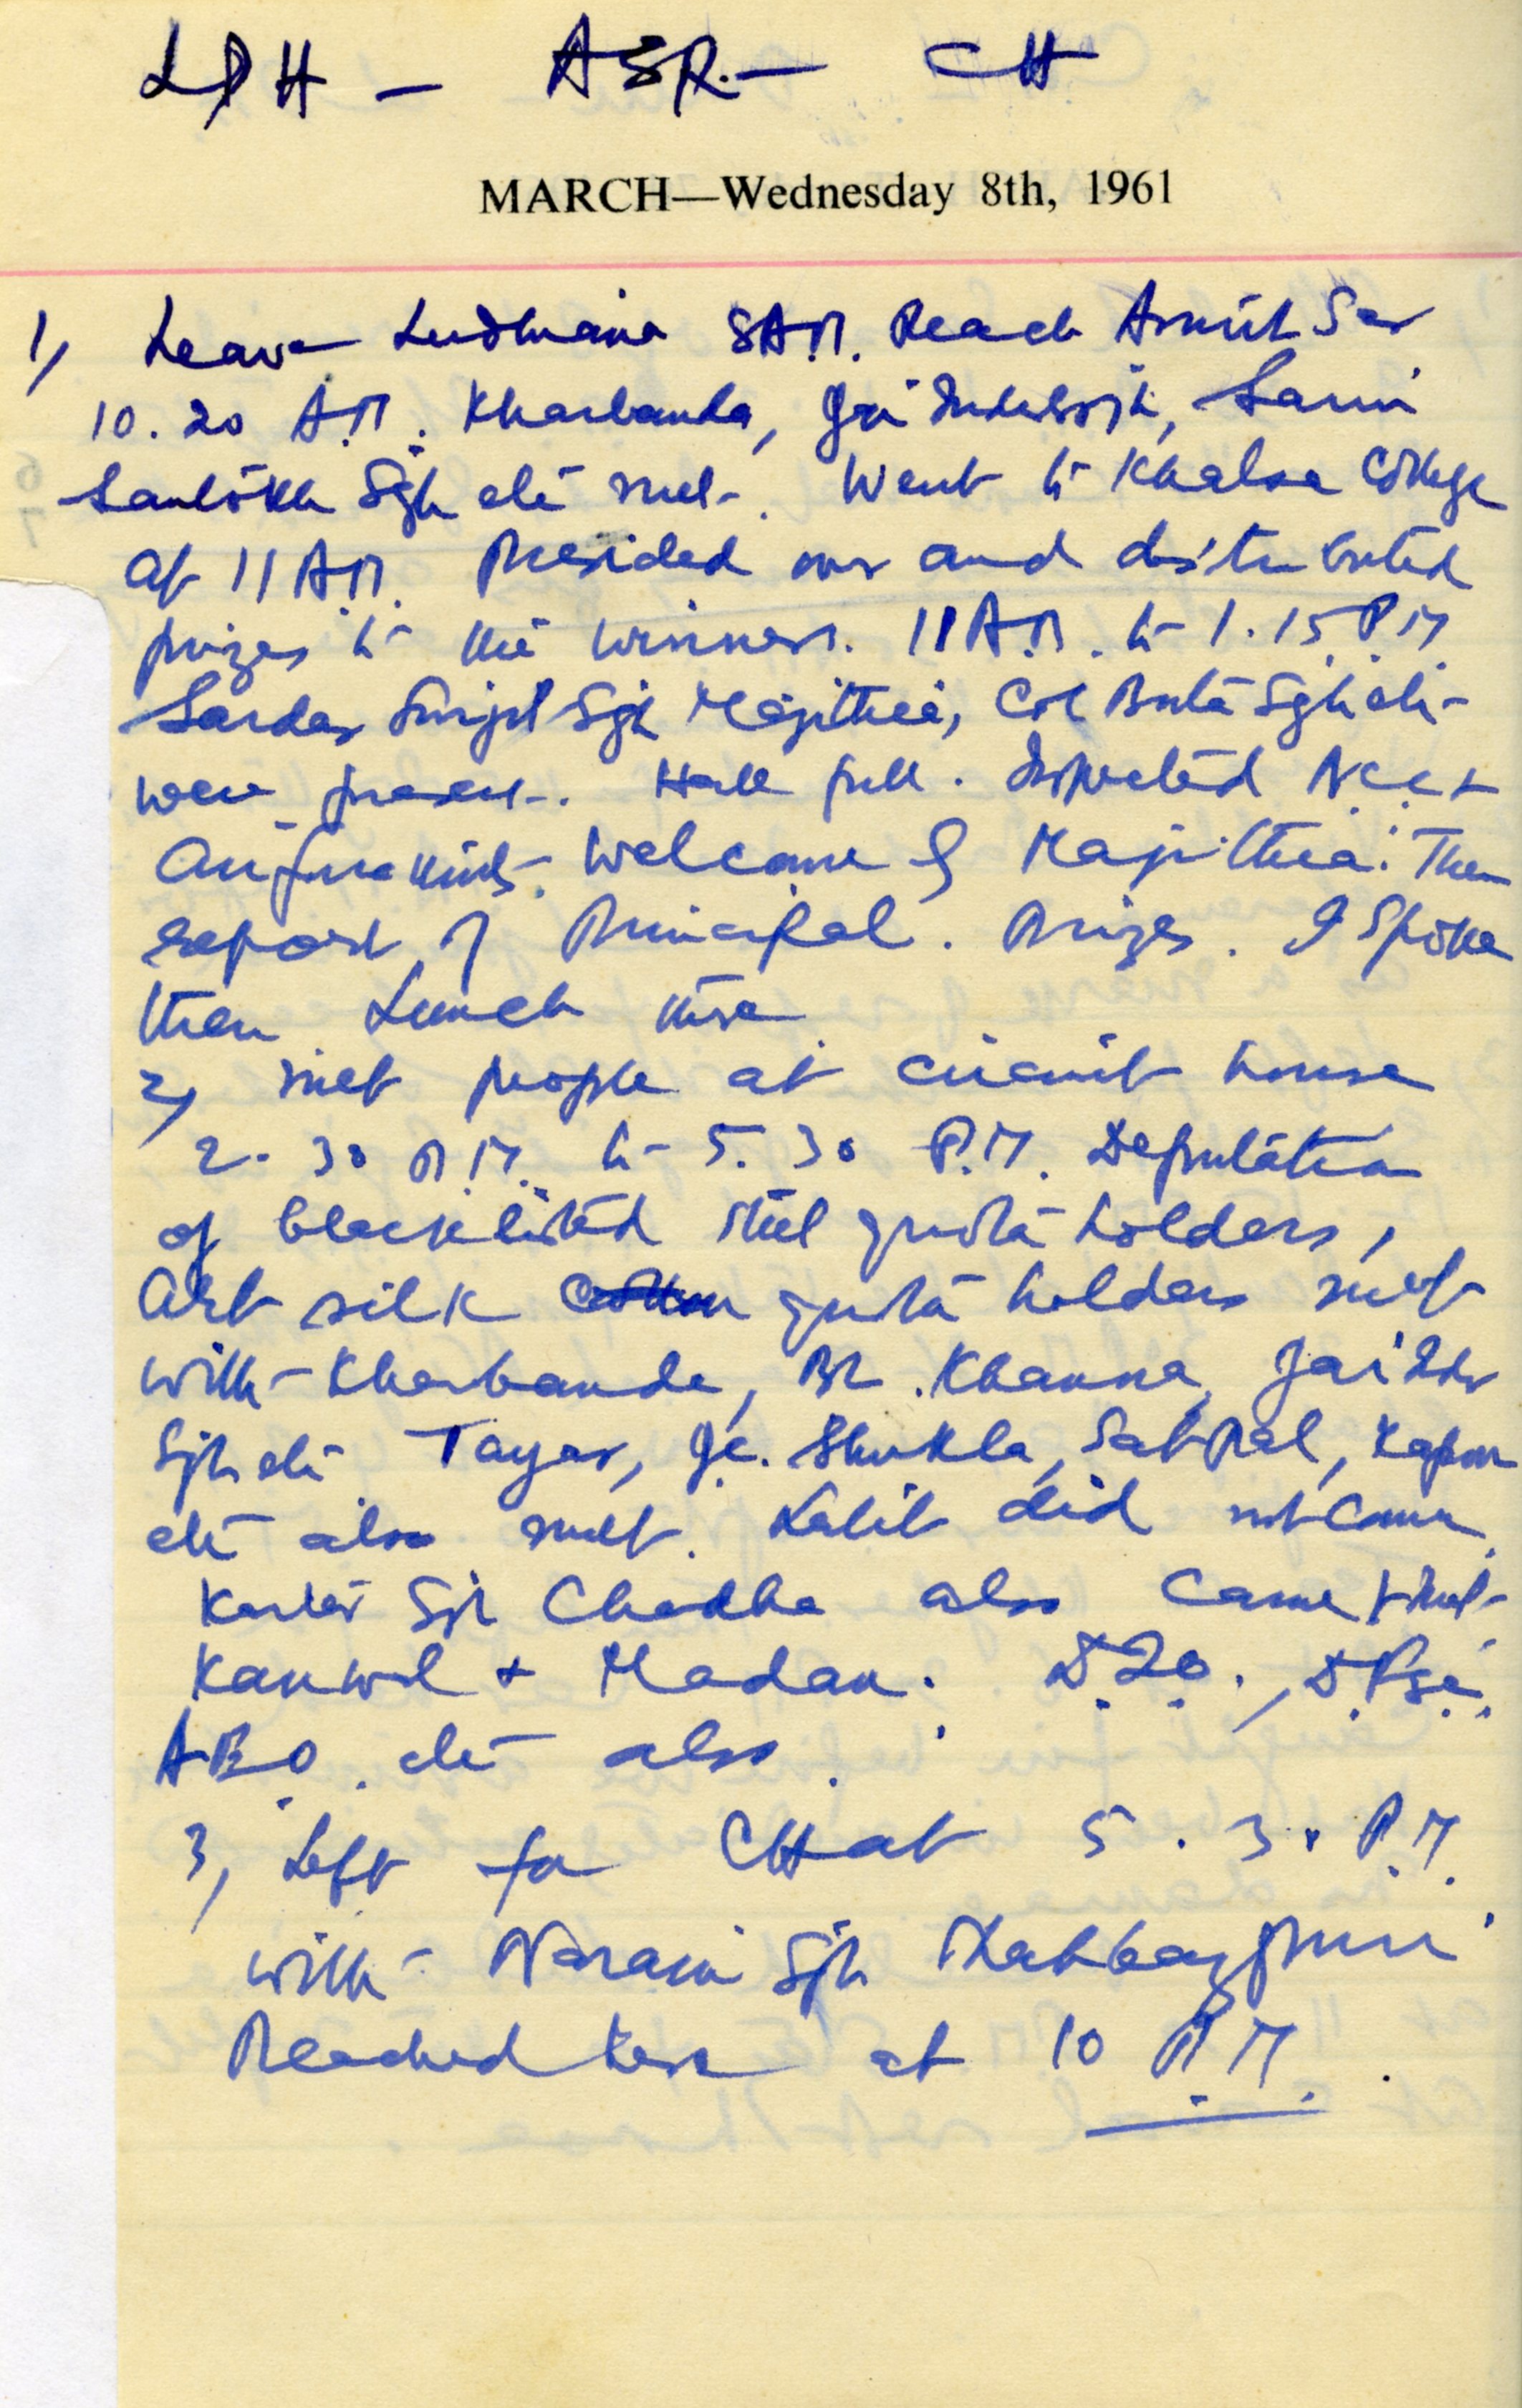 LDH - ASR. - CH
MARCH—Wednesday 8th, 1961
1) Leave Ludhiana 8 A.M. Reach Amrit Sar
10.20 A.M. Kharbanda, Jai Inder Sgh, Sarin
Santokh Sgh etc met. Went to Khalsa College
at 11 A.M. Presided over and distributed
prizes to the winners. 11 A.M. to 1.15 P.M
Sardar Surjit Sgh Majithia, Col Buta Sgh etc
were present. Hall full. Inspected N.C.C +
Welcome by Majithia. Then
report of Principal. Prizes. I spoke
then Lunch there
2) met people at circuit house
2.30 P.M. to 5.30 P.M. Deputation
of blacklisted steel quota holders,
Art silk quota holders met
with Kharbanda, Br. Khanna, Jai Inder
Sgh etc Tayar, J.C. Shukla, Sat Pal, Kapoor
etc also met. did not come.
Kartar Sgh Chadha also came & met
Kanwal + Madan.
etc also.
3) Left for CH at 5.30 P.M.
with Narain Sgh Shahbazpuri
Reached here at 10 P.M.